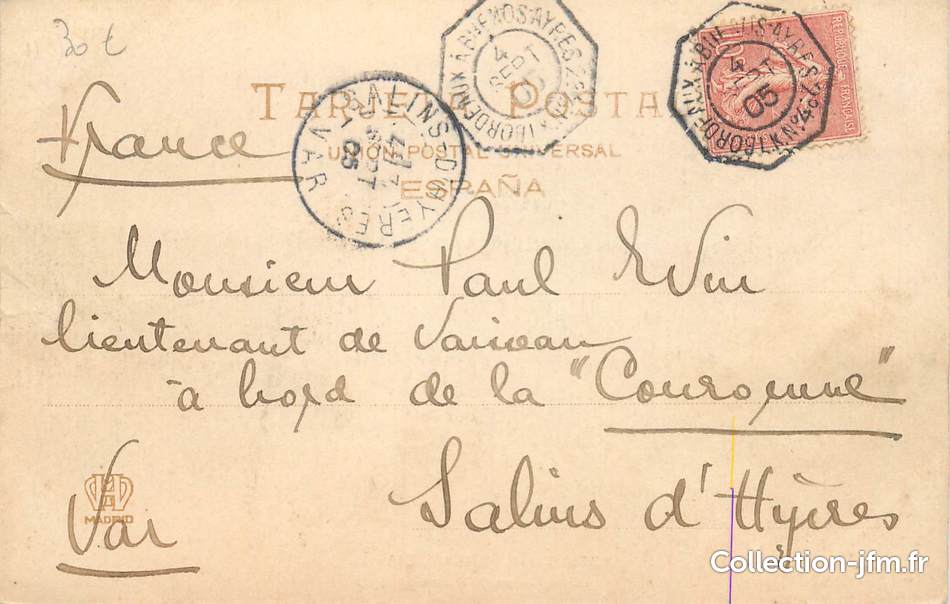 30 €
BORDEAUX À BUENOS-AYRES 2º
4 SEPT 05
BORDEAUX À BUENOS-AYRES
L.K Nº4
4 SEPT 05
RÉPUBLIQUE FRANÇAISE
10
TARJETA POSTAL
UNION POSTAL UNIVERSAL
ESPAÑA
SALINS-D'HYERES
SEPT
05
VAR
France
Monsieur Paul
lieutenant de Vaisseau
à bord de la "Couronne"
Salins d'Hyères
Var
MADRID
Collection-jfm.fr